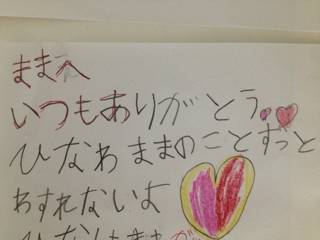 ままへ
いつもありがとう
ひなわままのことずっと
わすれないよ